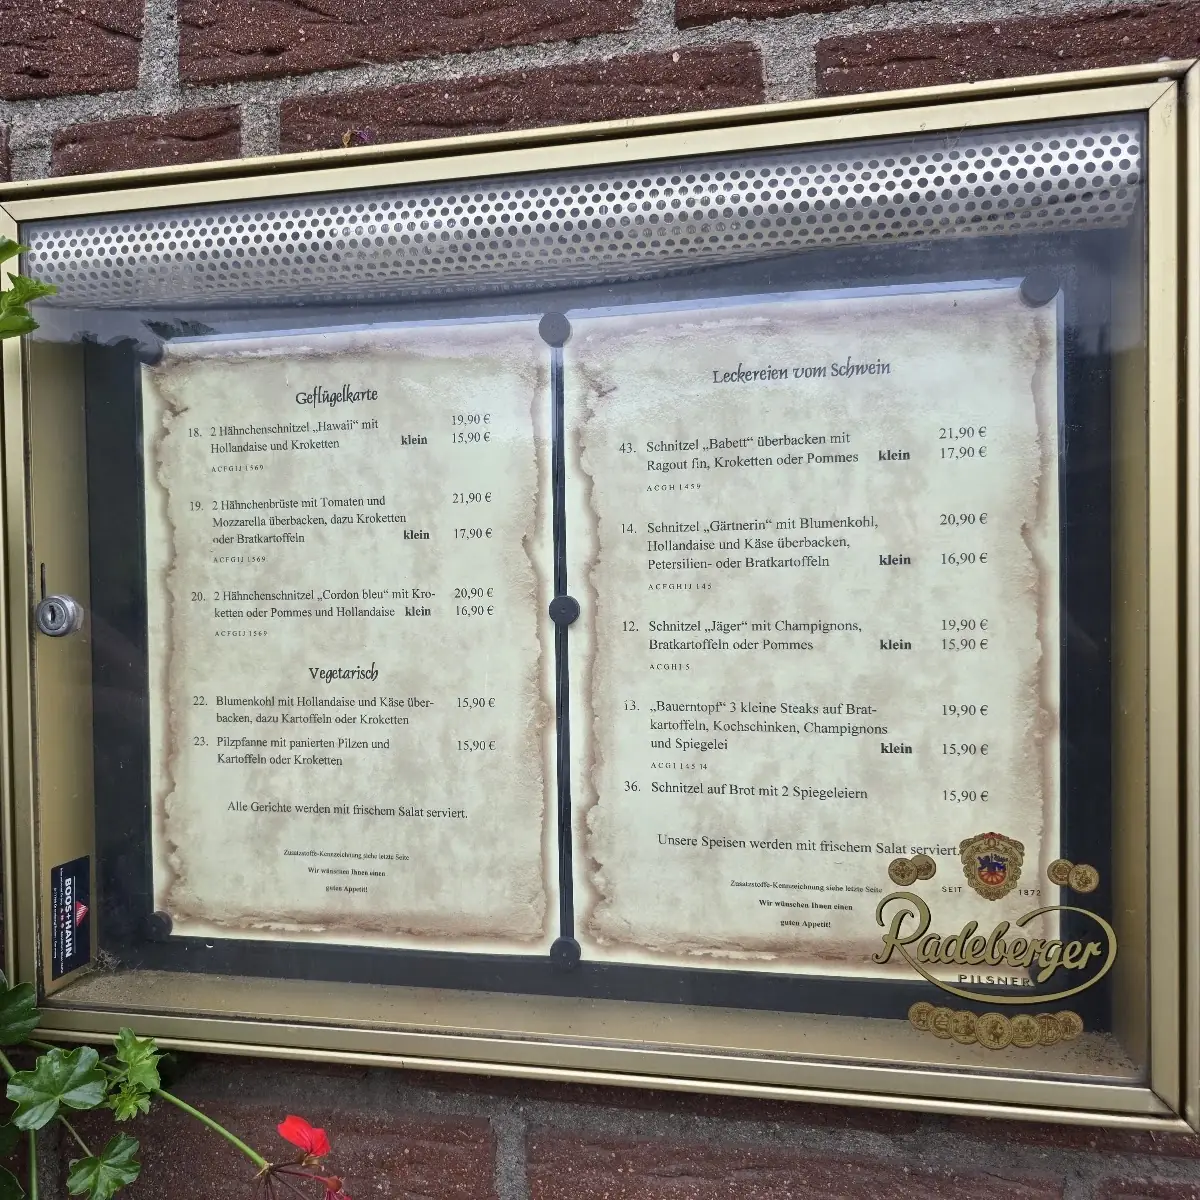 Geflügelkarte
18. 2 Hähnchenschnitzel „Hawaii“ mit 19,90 €
Hollandaise und Kroketten klein 15,90 €
A C F G I J 1 5 6 9
19. 2 Hähnchenbrüste mit Tomaten und 21,90 €
Mozzarella überbacken, dazu Kroketten
oder Bratkartoffeln klein 17,90 €
A C F G I J 1 5 6 9
20. 2 Hähnchenschnitzel „Cordon bleu“ mit Kro- 20,90 €
ketten oder Pommes und Hollandaise klein 16,90 €
A C F G I J 1 5 6 9
Vegetarisch
22. Blumenkohl mit Hollandaise und Käse über- 15,90 €
backen, dazu Kartoffeln oder Kroketten
23. Pilzpfanne mit panierten Pilzen und 15,90 €
Kartoffeln oder Kroketten
Alle Gerichte werden mit frischem Salat serviert.
Zusatzstoffe-Kennzeichnung siehe letzte Seite
Wir wünschen Ihnen einen
guten Appetit!
Leckereien vom Schwein
43. Schnitzel „Babett“ überbacken mit 21,90 €
Ragout fin, Kroketten oder Pommes klein 17,90 €
A C G H 1 4 5 9
14. Schnitzel „Gärtnerin“ mit Blumenkohl, 20,90 €
Hollandaise und Käse überbacken,
Petersilien- oder Bratkartoffeln klein 16,90 €
A C F G H I J 1 4 5
12. Schnitzel „Jäger“ mit Champignons, 19,90 €
Bratkartoffeln oder Pommes klein 15,90 €
A C G H I 5
13. „Bauerntopf“ 3 kleine Steaks auf Brat- 19,90 €
kartoffeln, Kochschinken, Champignons
und Spiegelei klein 15,90 €
A C G I 1 4 5 14
36. Schnitzel auf Brot mit 2 Spiegeleiern 15,90 €
Unsere Speisen werden mit frischem Salat serviert.
Zusatzstoffe-Kennzeichnung siehe letzte Seite
Wir wünschen Ihnen einen
guten Appetit!
SEIT 1872
Radeberger
PILSNER
BOOS+HAHN